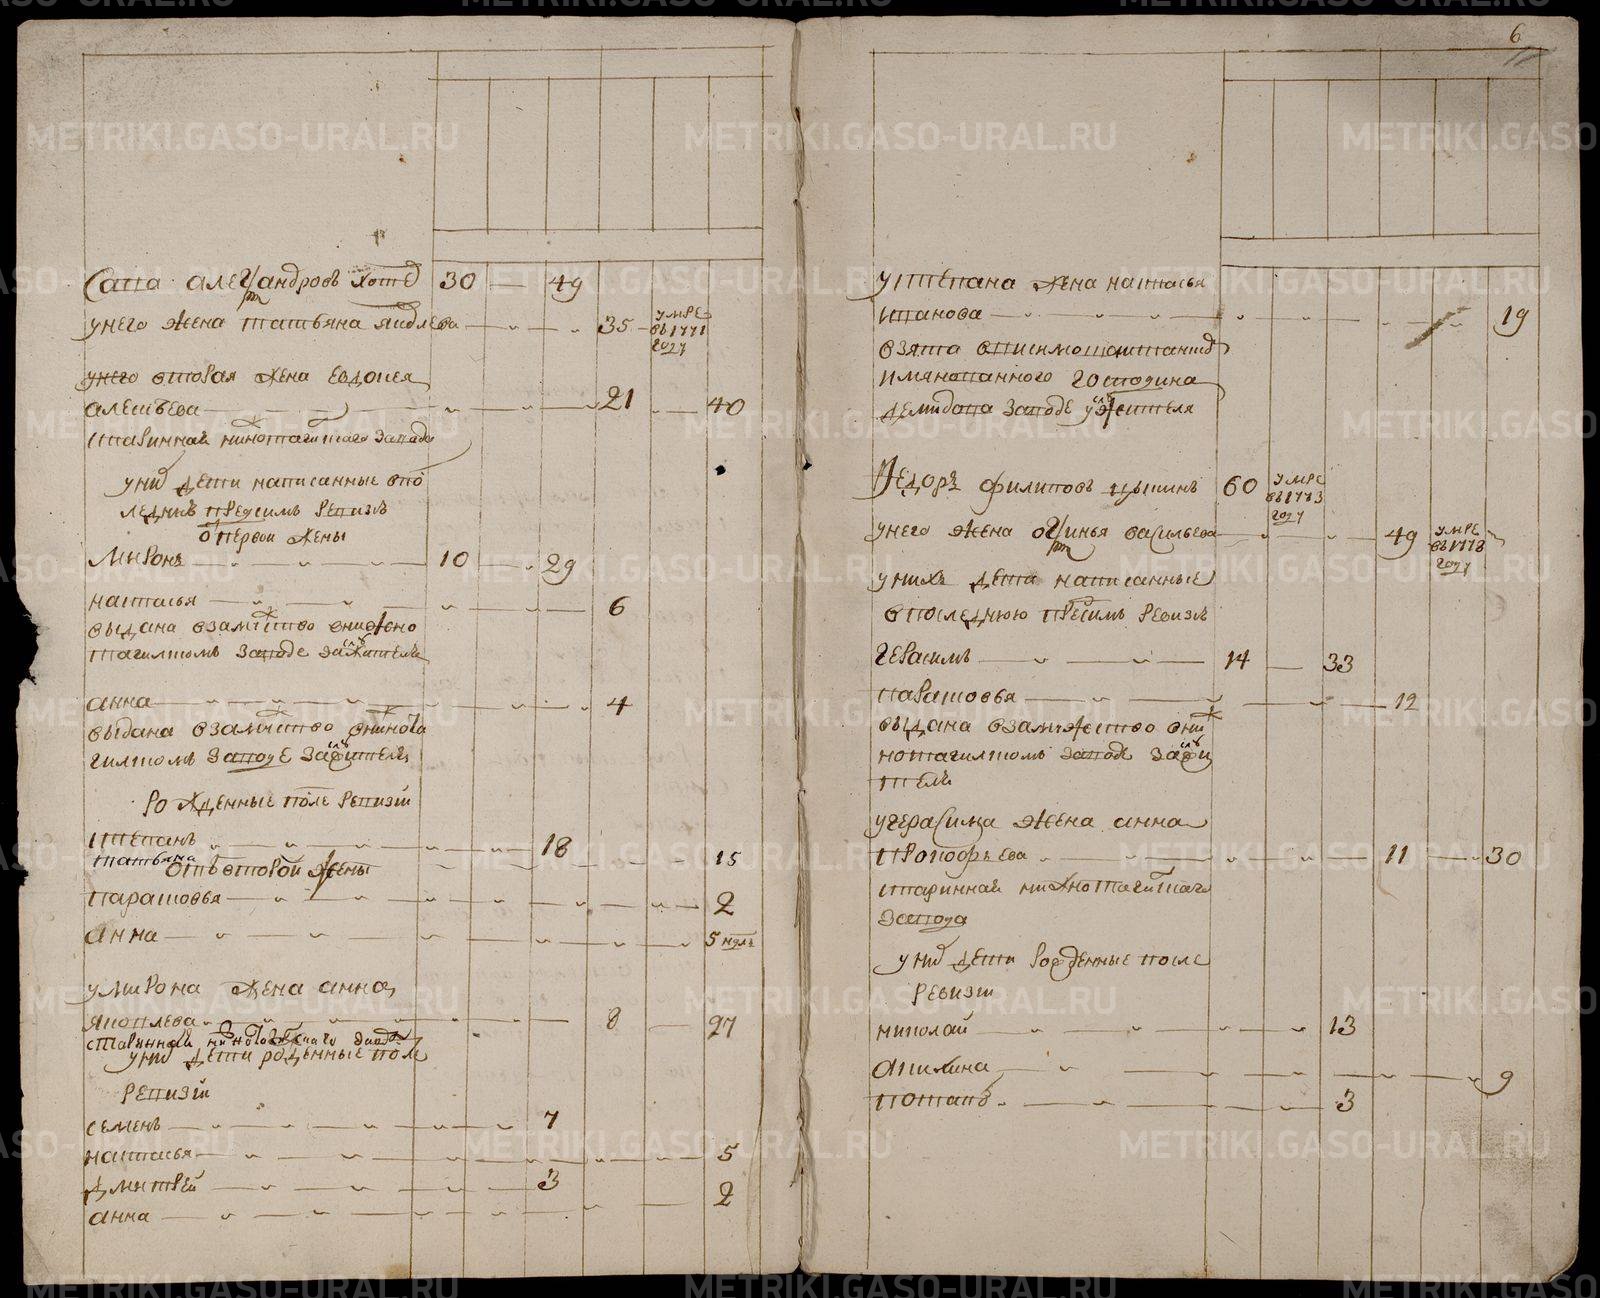 Сава Александровъ Котев 30 49
у него жена татьяна яковлева 35 умре въ 1771 году
у него вторая жена евдокея
алексѣева 21 40
старинная нижнотагилского завода
у них дети написанные в по
следнѣ пред сим ревизѣ
от первой жены
Миронъ 10 29
наталья 6
выдана в замужство в нижно
тагилском заводе за жителя
анна 4
выдана в замужство в нижнота
гилском заводе за жителя
рожденные после ревизiи
степанъ 18
татьяна 15
отъ второй жены
парасковья 2
анна 5 ндль
у мирона жена анна
яковлева 8 27
старинная нижнотагилскаго завода
у них дети рожденные после
ревизiи
семенъ 7
наталья 5
дмитрей 3
анна 2
6
у степана жена наталья
иванова 19
взята
имянованного господина
демидова заводе у жителя
Федоръ филиповъ 60 умре въ 1773 году
у него жена огсинья васильева 49 умре въ 1778 году
у нихъ дети написанные
в последнюю пред сим ревизѣ
герасимъ 14 33
парасковья 12
выдана в замужество в ниж
нотагилском заводе за жи
теля
у герасима жена анна
прокофьева 11 30
старинная нижнотагилскаго
завода
у них дети рожденные после
ревизiи
николай 13
акилина 9
потапъ 3
METRIKI.GASO-URAL.RU